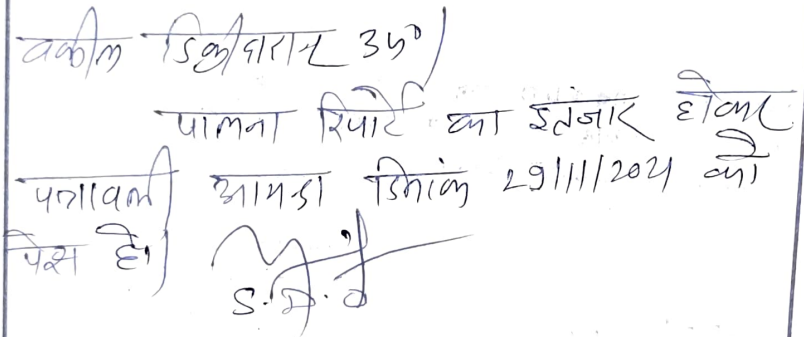 वकील डिक्रीदारान उप०
पालना रिपोर्ट का इतंजार होकर
पत्रावली आयन्दा दिनांक 29/11/2021 को
पेश हो।